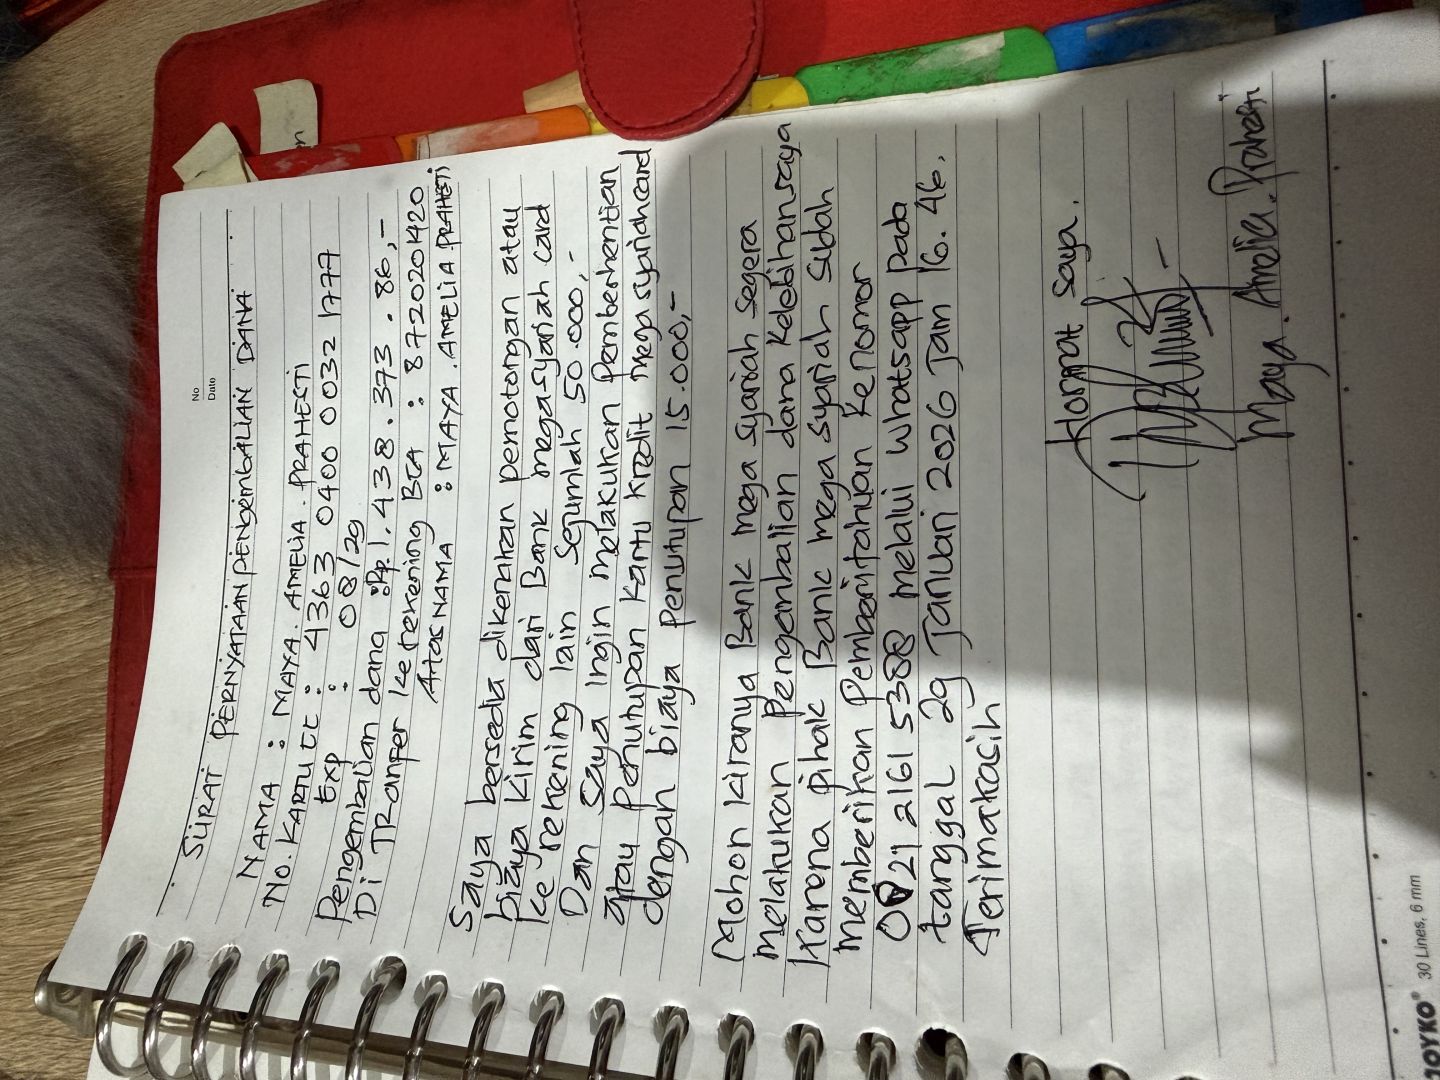 No
Date
SURAT PERNYATAAN PENGEMBALIAN DANA
NAMA : MAYA . AMELIA . PRAHESTI
No. KARTU CC : 4363 0400 0032 1777
Exp : 08/29
Pengembalian dana : Rp. 1. 438 . 373 . 86,-
Di TRanfer ke rekening BCA : 8720201420
ATAS NAMA : MAYA . AMELIA PRAHESTI
Saya bersedia dikenakan pemotongan atau
biaya kirim dari Bank mega syariah card
ke rekening lain sejumlah 50.000,-
Dan Saya Ingin melakukan Pemberhentian
atau Penutupan Kartu Kredit mega syariah card
dengan biaya Penutupan 15.000,-
Mohon kiranya Bank mega syariah segera
melakukan Pengembalian dana kelebihan saya
Karena pihak Bank mega syariah sudah
memberikan Pemberitahuan Ke nomor
021 2161 5388 melalui whatsapp Pada
tanggal 29 Januari 2026 Jam 16. 46.
Terimakasih
Hormat saya.
Maya . Amelia . Prahesti
JOYKO® 30 Lines, 6 mm